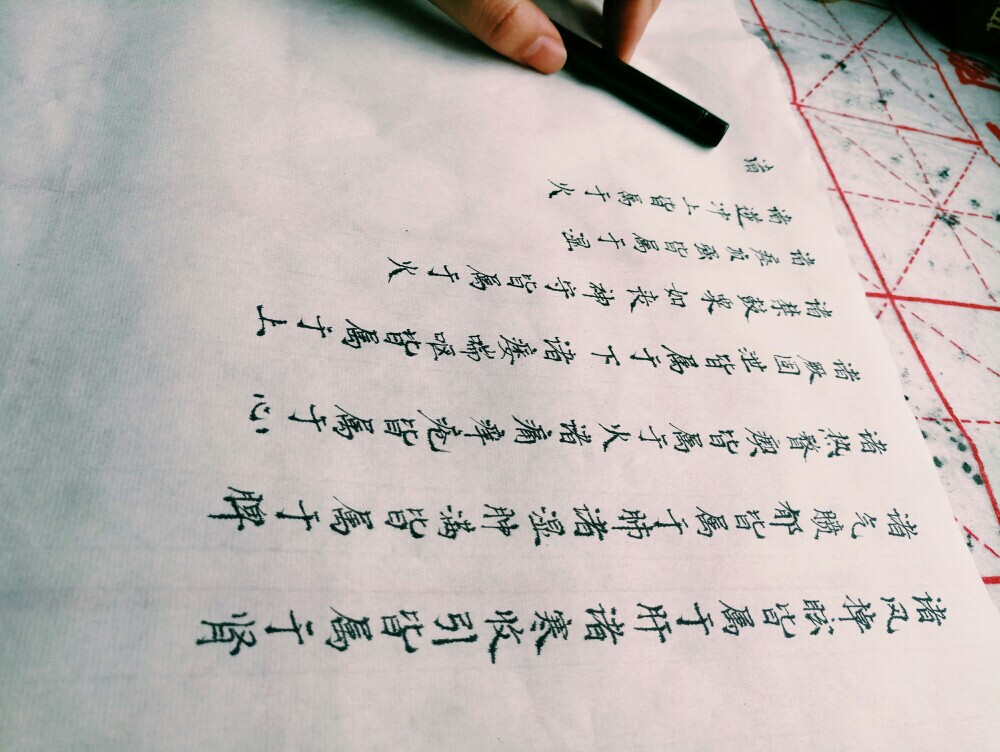 诸风掉眩皆属于肝诸寒收引皆属于肾
诸气膹郁皆属于肺诸湿肿满皆属于脾
诸热瞀瘛皆属于火诸痛痒疮皆属于心
诸厥固泄皆属于下诸痿喘呕皆属于上
诸禁鼓栗如丧神守皆属于火
诸痉项强皆属于湿
诸逆冲上皆属于火
诸